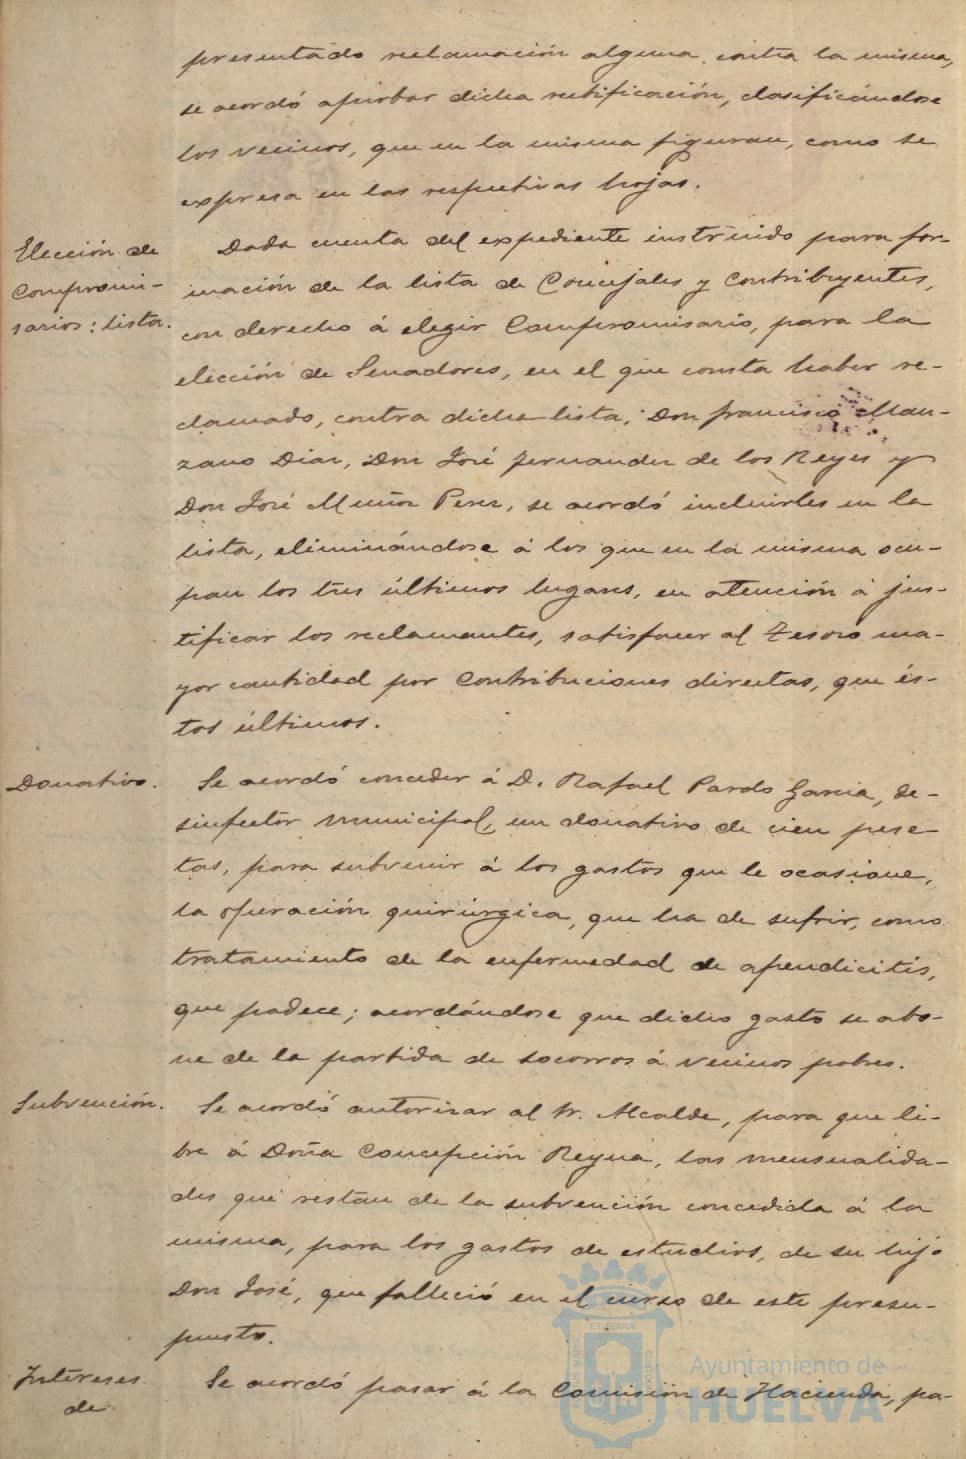 presentado reclamación alguna, contra la misma,
se acordó aprobar dicha rectificación, clasificándose
los vecinos, que en la misma figuran, como se
expresa en las respectivas hojas.
Elección de
Compromi-
sarios: lista.
Dada cuenta del expediente instruido para for-
mación de la lista de Concejales y Contribuyentes,
con derecho á elegir Compromisario, para la
elección de Senadores, en el que consta haber re-
clamado, contra dicha lista, Don Francisco Man-
zano Diaz, Don José Fernandez de los Reyes y
Don José Muñoz Perez, se acordó incluirles en la
lista, eliminándose á los que en la misma ocu-
pan los tres últimos lugares, en atención á jus-
tificar los reclamantes, satisfacer al Tesoro ma-
yor cantidad por Contribuciones directas, que és-
tos últimos.
Donativo.
Se acordó conceder á D. Rafael Pardo Garcia, de-
sinfector municipal, un donativo de cien pese-
tas, para subvenir á los gastos que le ocasione,
la operación quirúrgica, que ha de sufrir, como
tratamiento de la enfermedad de apendicitis,
que padece; acordándose que dicho gasto se abo-
ne de la partida de socorros á vecinos pobres.
Subvención.
Se acordó autorizar al Sr. Alcalde, para que li-
bre á Doña Concepción Reyna, las mensualida-
des que restan de la subvención concedida á la
misma, para los gastos de estudios, de su hijo
Don José, que falleció en el curso de este presu-
puesto.
Intereses
de
Se acordó pasar á la Comisión de Hacienda, pa-
Ayuntamiento de
HUELVA